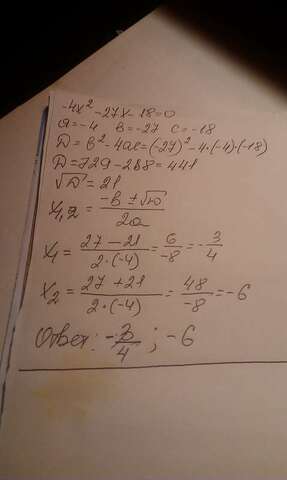 -4x² -27x -18=0
a=-4 в=-27 c=-18
D=в²-4ac=(-27)²-4·(-4)·(-18)
D=729-288=441
√D=21
x₁,₂ = (-в ± √D)/(2a)
x₁ = (27-21)/(2·(-4)) = 6/(-8) = -3/4
x₂ = (27+21)/(2·(-4)) = 48/(-8) = -6
Ответ: -3/4 ; -6